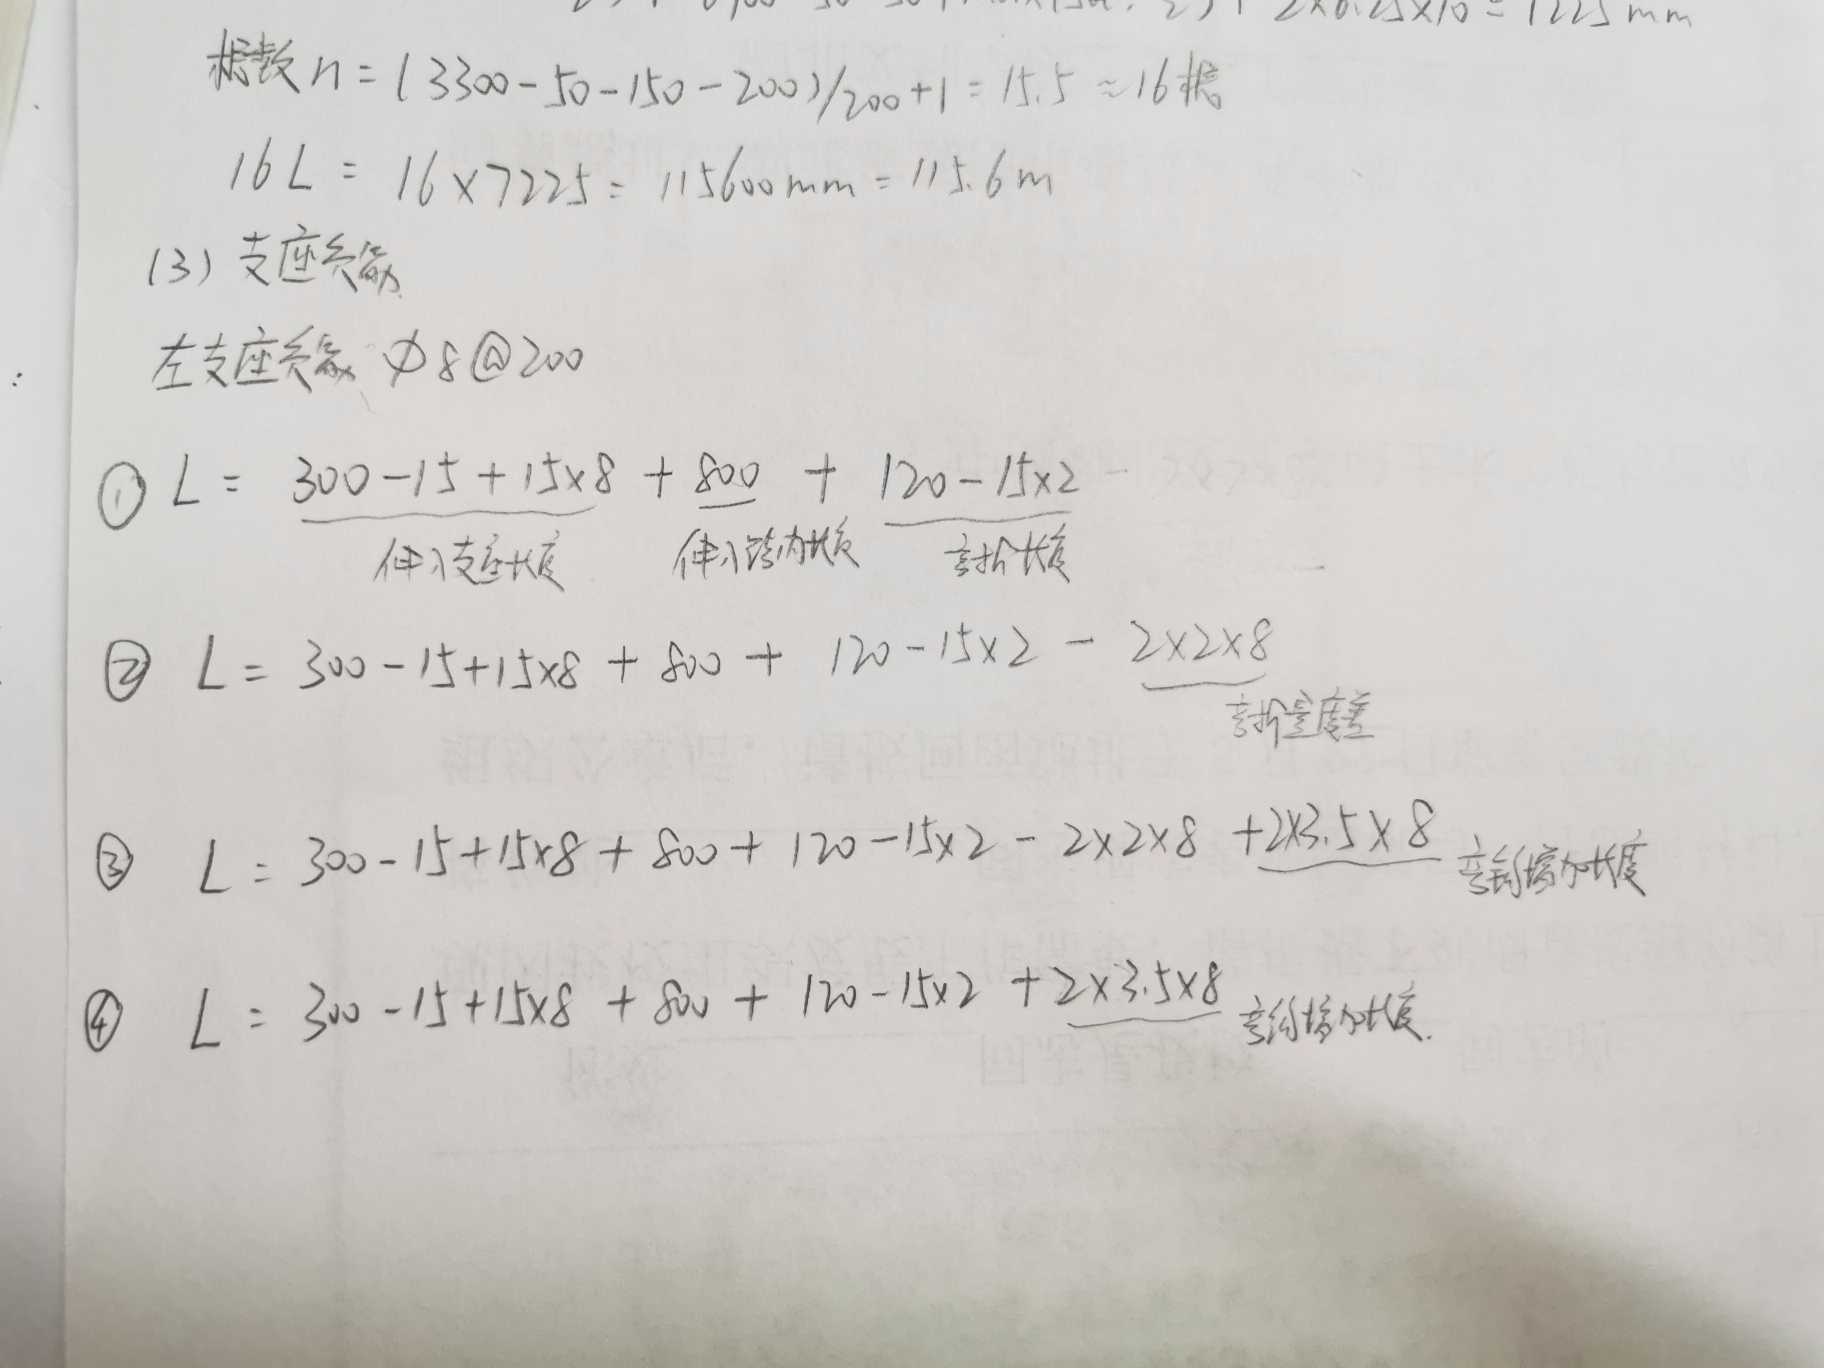 2×6.25×10 = 7225mm
根数 n = (3300-50-150-200)/200+1 = 15.5 ≈16根
16L = 16×7225 = 115600mm = 115.6m
(3) 支座负筋
左支座负筋 Φ8@200
① L = 300-15+15×8 + 800 + 120-15×2
伸入支座长度 伸入跨内长度 弯折长度
② L = 300-15+15×8 + 800 + 120-15×2 - 2×2×8
弯折量度差
③ L = 300-15+15×8 + 800 + 120-15×2 - 2×2×8 +2×3.5×8 弯钩增加长度
④ L = 300-15+15×8 + 800 + 120-15×2 +2×3.5×8 弯钩增加长度.